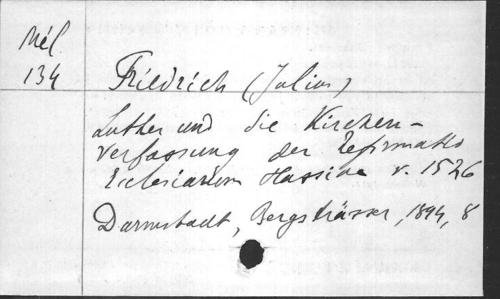 Mél
134
Friedrich (Julius)
Luther und die Kirchen-
verfassung der Reformatio
Ecclesiarum Hassiae v. 1526
Darmstadt, Bergsträsser, 1894, 8